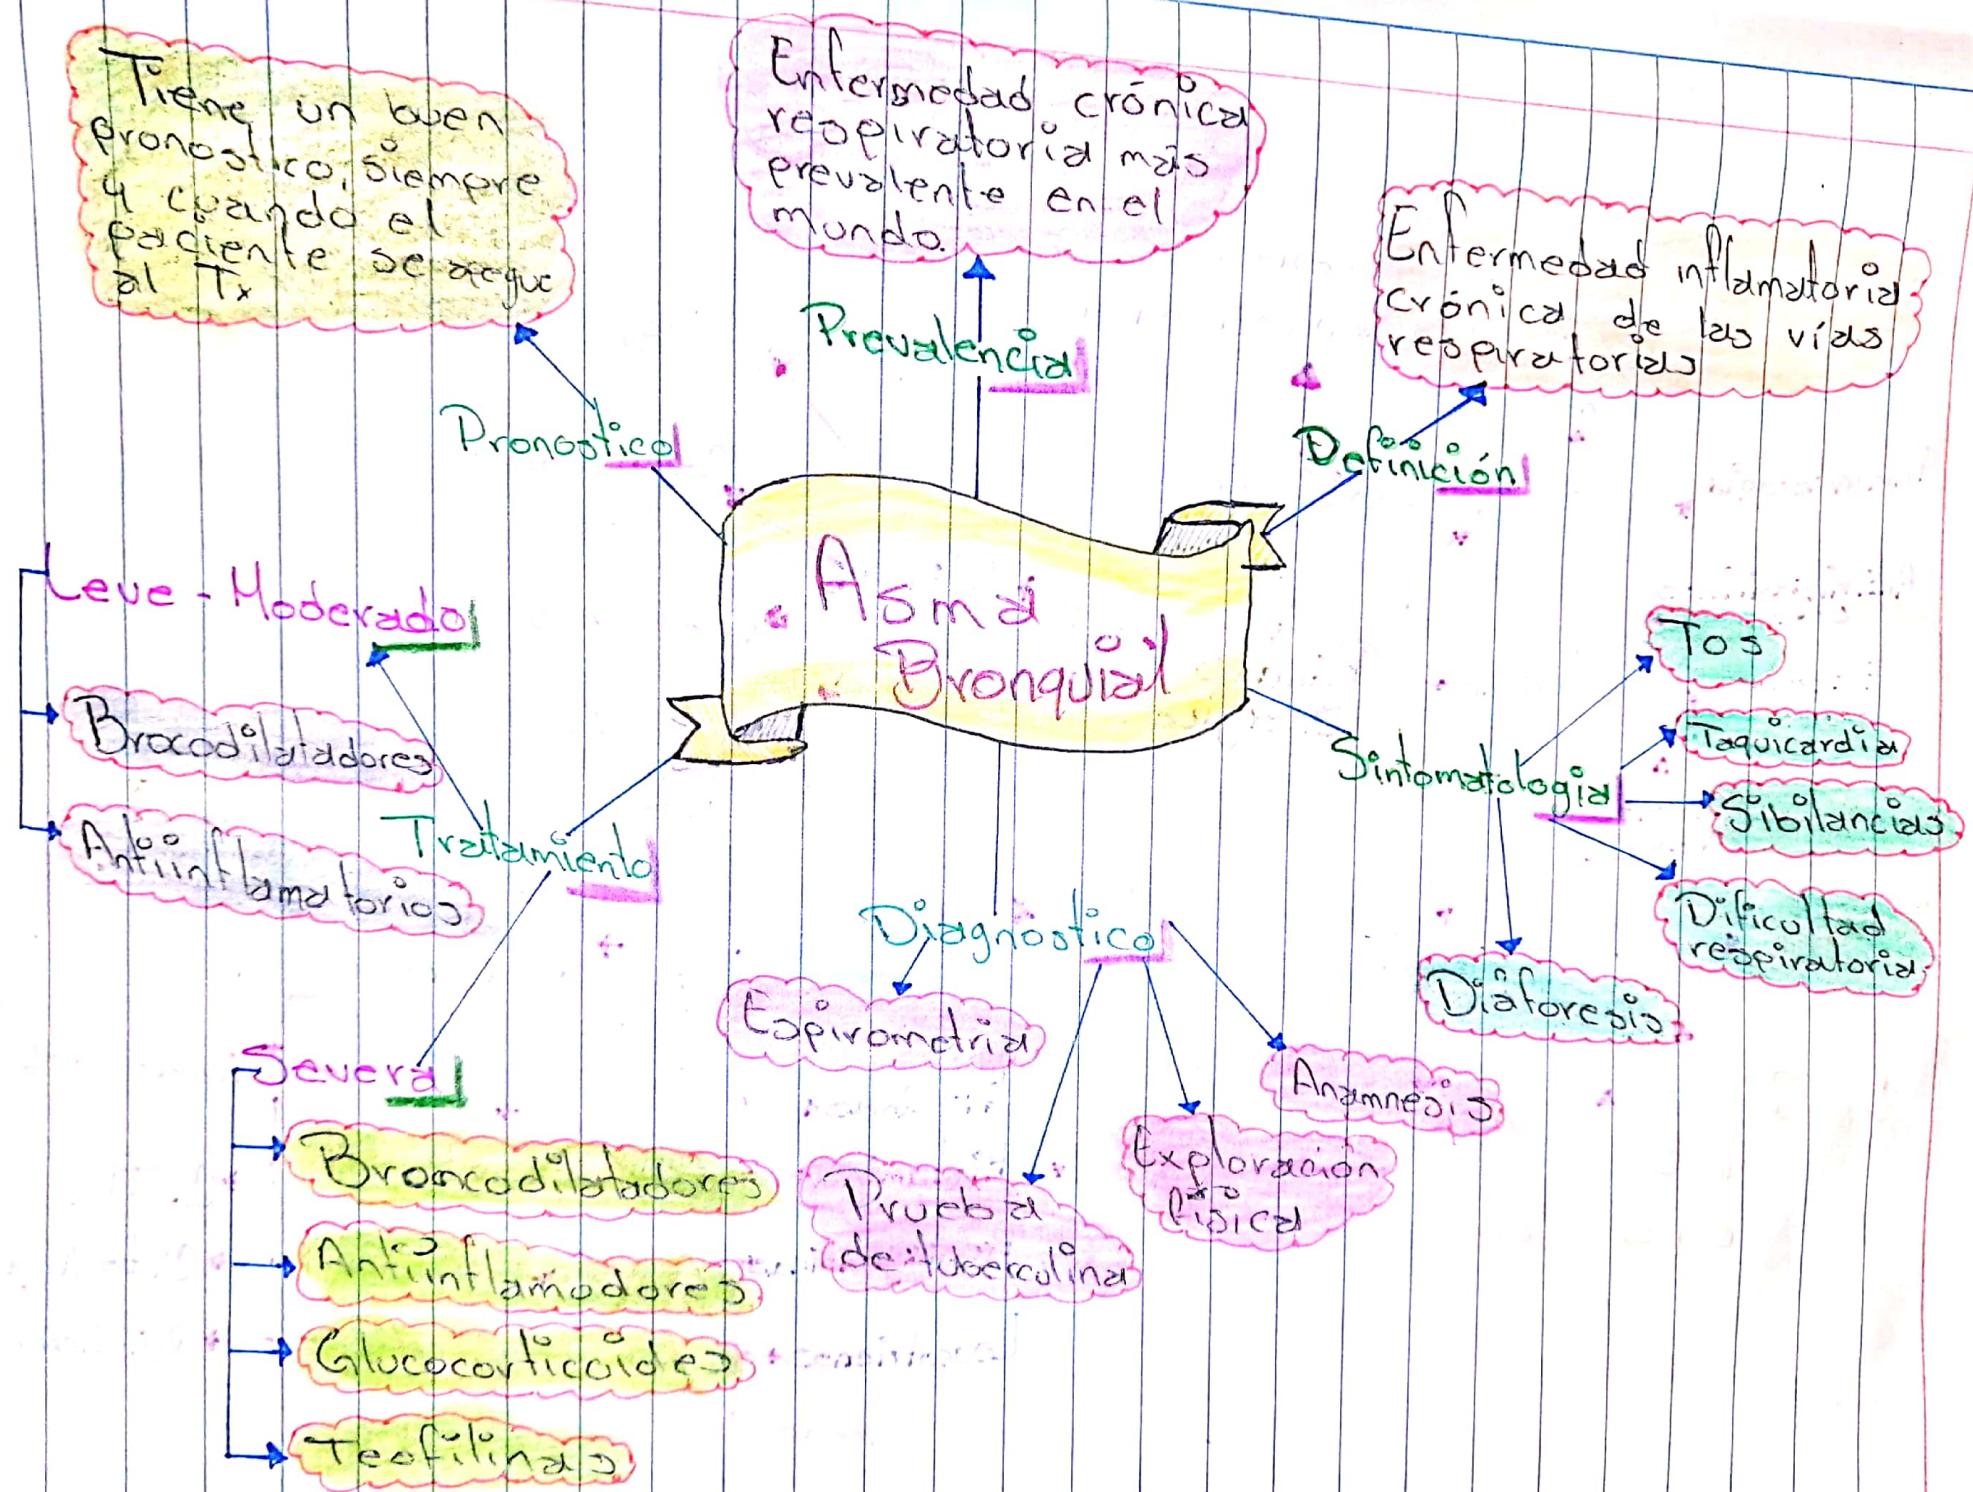 Tiene un buen
pronostico, siempre
y cuando el
paciente se apegue
al Tx
Enfermedad crónica
respiratoria más
prevalente en el
mundo.
Enfermedad inflamatoria
crónica de las vías
respiratorias
Prevalencia
Pronostico
Definición
Asma
Bronquial
Leve - Moderado
Brocodilatadores
Antiinflamatorios
Tratamiento
Severa
Broncodilatadores
Antiinflamodores
Glucocorticoides
Teofilinas
Diagnostico
Espirometria
Prueba
de tuberculina
Exploración
física
Anamnesis
Sintomatologia
Tos
Taquicardia
Sibilancias
Dificultad
respiratoria
Diaforesis